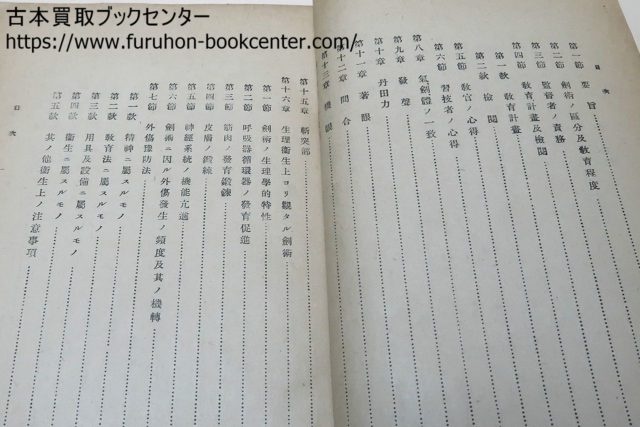 古本買取ブックセンター
https://www.furuhon-bookcenter.com/
目次
第一節 要旨
第二節 劍術ノ區分及敎育程度
第三節 監督者ノ責務
第四節 敎育計畫及檢閲
第一款 敎育計畫
第二款 檢閲
第五節 敎官ノ心得
第六節 習技者ノ心得
第八章 氣劍體ノ一致
第九章 發聲
第十章 丹田力
第十一章 著眼
第十二章 間合
第十三章 機眼
第十五章 斬突部
第十六章 生理衞生上ヨリ觀タル劍術
第一節 劍術ノ生理學的特性
第二節 呼吸器循環器ノ發育促進
第三節 筋肉ノ發育鍛鍊
第四節 皮膚ノ鍛鍊
第五節 神經系統ノ機能亢進
第六節 劍術ニ因ル外傷發生ノ頻度及其ノ機轉
第七節 外傷豫防法
第一款 精神ニ屬スルモノ
第二款 敎育法ニ屬スルモノ
第三款 用具及設備ニ屬スルモノ
第四款 衞生ニ屬スルモノ
第五款 其ノ他衞生上ノ注意事項
目次